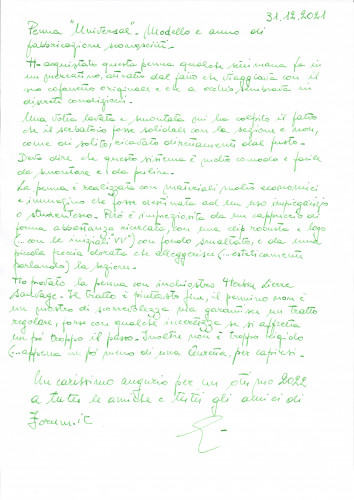 31.12.2021
Penna "Universal". Modello e anno di
fabbricazione sconosciuti.
Ho acquistato questa penna qualche settimana fa in
un mercatino, attirato dal fatto che viaggiava con il
suo cofanetto originale e che a occhio sembrava in
discrete condizioni.
Una volta lavata e smontata mi ha colpito il fatto
che il serbatoio fosse solidale con la sezione e non,
come di solito, ricavato direttamente dal fusto.
Devo dire che questo sistema è molto comodo e facile
da smontare e da pulire.
La penna è realizzata con materiali molto economici
e immagino che fosse destinata ad un uso impiegatizio
o studentesco. Però è impreziosita da un cappuccio di
forma abbastanza ricercata, con una clip robusta e logo
(...con le iniziali VV) con fondo smaltato, e da una
piccola fascia dorata che alleggerisce (...esteticamente
parlando) la sezione.
Ho provato la penna con inchiostro Herbin Lierre
Sauvage. Se tratto è piuttosto fine, il pennino non è
un mostro di scorrevolezza ma garantisce un tratto
regolare, forse con qualche incertezza se si affretta
un po' troppo il passo. Inoltre non è troppo rigido
(...appena un po' meno di una Aurora, per capirsi.
Un carissimo augurio per un ottimo 2022
a tutte le amiche e tutti gli amici di
Forum.it